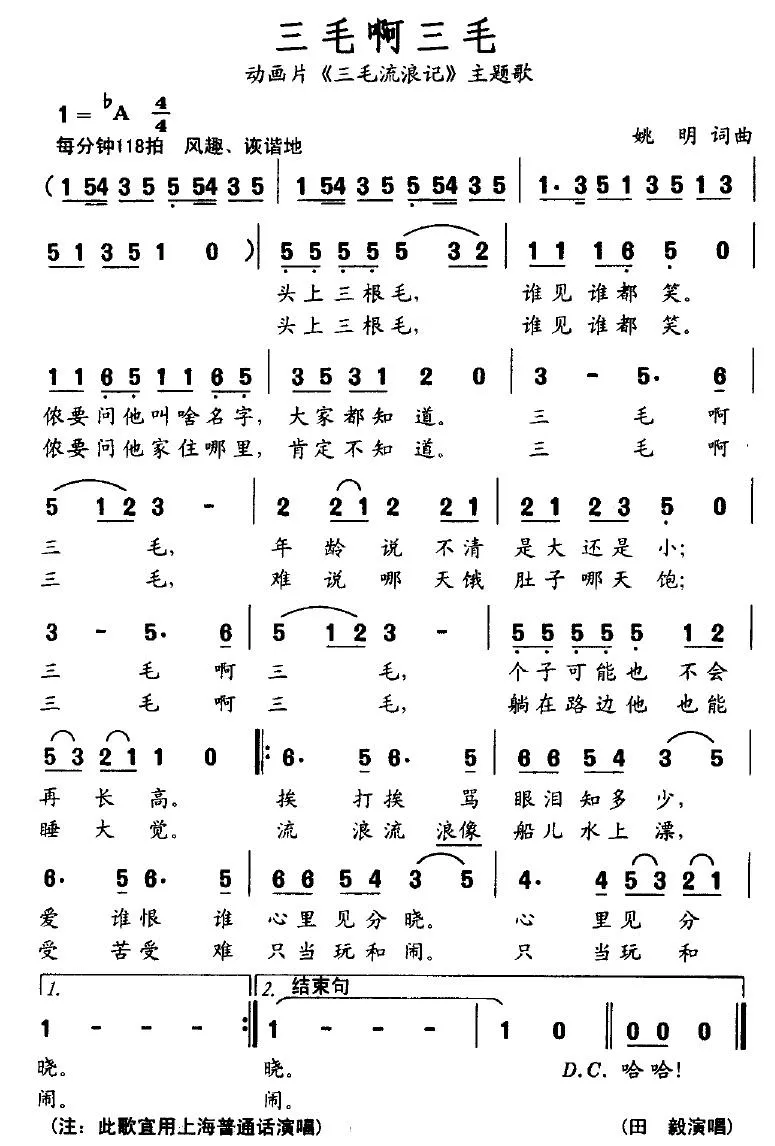 三毛啊三毛
动画片《三毛流浪记》主题歌
1=♭A 4/4
每分钟118拍 风趣、诙谐地
姚 明 词曲
(1 54 3 5 5 54 3 5 | 1 54 3 5 5 54 3 5 | 1· 3 5 1 3 5 1 3
5 1 3 5 1 0 )| 5 5 5 5 5 3 2 | 1 1 1 6 5 0
头上三根毛, 谁见谁都笑。
头上三根毛, 谁见谁都笑。
1 1 6 5 1 1 6 5 | 3 5 3 1 2 0 | 3 - 5· 6
侬要问他叫啥名字, 大家都知道。 三 毛 啊
侬要问他家住哪里, 肯定不知道。 三 毛 啊
5 1 2 3 - | 2 2 1 2 2 1 | 2 1 2 3 5 0
三 毛, 年龄说不清 是大还是小;
三 毛, 难说哪天饿 肚子哪天饱;
3 - 5· 6 | 5 1 2 3 - | 5 5 5 5 5 1 2
三 毛 啊 三 毛, 个子可能也不会
三 毛 啊 三 毛, 躺在路边他也能
5 3 2 1 1 0 ‖: 6· 5 6· 5 | 6 6 5 4 3 5
再长高。 挨打挨骂 眼泪知多少,
睡大觉。 流浪流浪像 船儿水上漂,
6· 5 6· 5 | 6 6 5 4 3 5 | 4· 4 5 3 2 1
爱谁恨谁 心里见分晓。 心里见分
受苦受难 只当玩和闹。 只当玩和
1. 2. 结束句
1 - - - :‖ 1 - - - | 1 0 ‖ 0 0 0 ‖
晓。 晓。 D.C. 哈哈!
闹。 闹。
(注: 此歌宜用上海普通话演唱) (田 毅演唱)